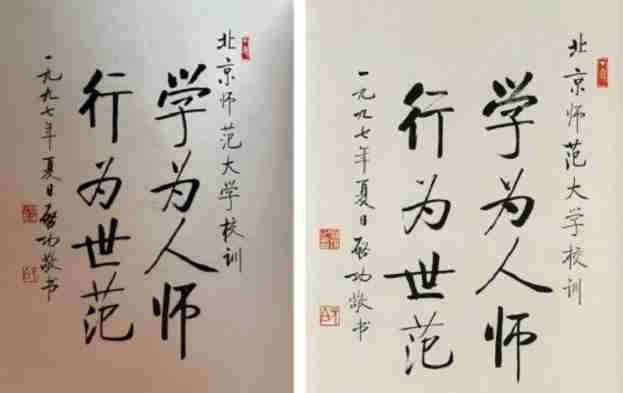 北京师范大学校训
学为人师
行为世范
一九九七年夏日启功敬书
北京师范大学校训
学为人师
行为世范
一九九七年夏日启功敬书